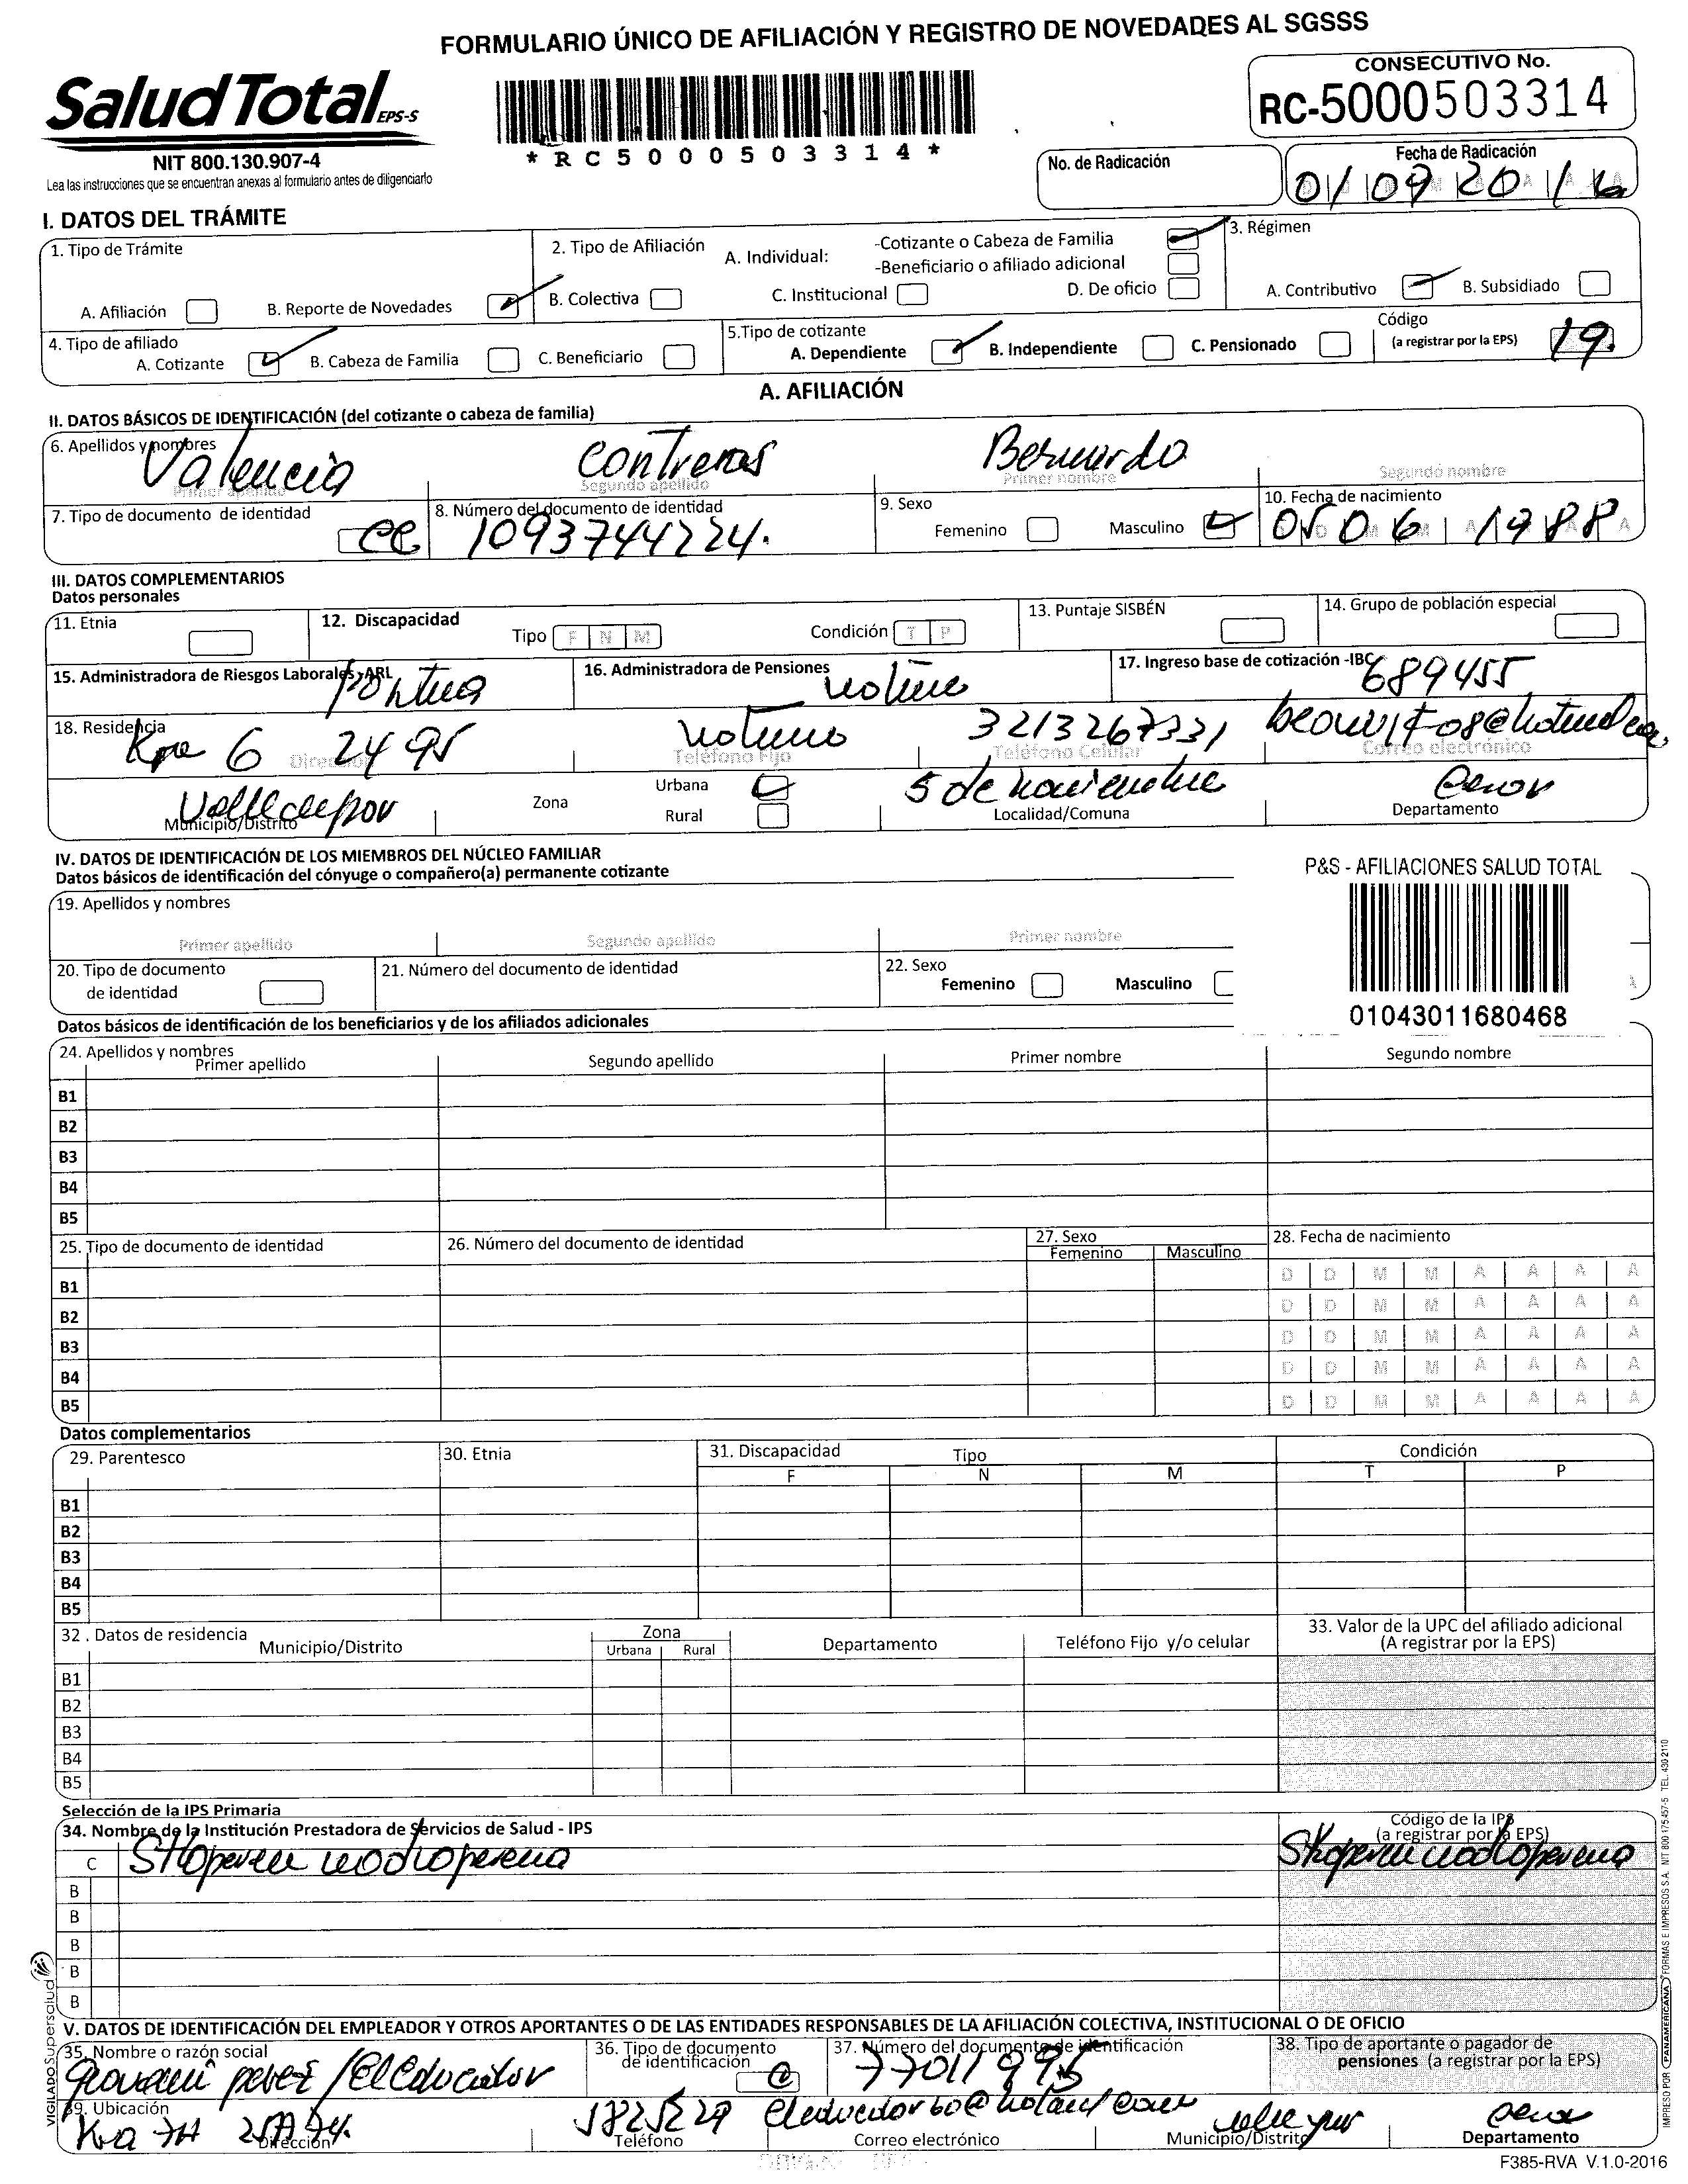 FORMULARIO ÚNICO DE AFILIACIÓN Y REGISTRO DE NOVEDADES AL SGSSS
Salud Total EPS-S
NIT 800.130.907-4
Lea las instrucciones que se encuentran anexas al formulario antes de diligenciarlo
*RC5000503314*
CONSECUTIVO No.
RC-5000503314
No. de Radicación
Fecha de Radicación
01 09 2016
I. DATOS DEL TRÁMITE
1. Tipo de Trámite
A. Afiliación B. Reporte de Novedades
2. Tipo de Afiliación A. Individual: -Cotizante o Cabeza de Familia
-Beneficiario o afiliado adicional
B. Colectiva C. Institucional D. De oficio
3. Régimen
A. Contributivo B. Subsidiado
4. Tipo de afiliado
A. Cotizante B. Cabeza de Familia C. Beneficiario
5.Tipo de cotizante
A. Dependiente B. Independiente C. Pensionado
Código
(a registrar por la EPS) 19.
A. AFILIACIÓN
II. DATOS BÁSICOS DE IDENTIFICACIÓN (del cotizante o cabeza de familia)
6. Apellidos y nombres
Valencia Contreras Bernardo
Primer apellido Segundo apellido Primer nombre Segundo nombre
7. Tipo de documento de identidad CC
8. Número del documento de identidad
1093744224.
9. Sexo
Femenino Masculino
10. Fecha de nacimiento
05 06 1988
III. DATOS COMPLEMENTARIOS
Datos personales
11. Etnia
12. Discapacidad Tipo F N M Condición T P
13. Puntaje SISBÉN
14. Grupo de población especial
15. Administradora de Riesgos Laborales -ARL
16. Administradora de Pensiones
17. Ingreso base de cotización -IBC 689455
18. Residencia
6 24 95 3213267331
Dirección Teléfono Fijo Teléfono Celular Correo electrónico
Valledupar
Municipio/Distrito
Zona Urbana
Rural
5 de noviembre
Localidad/Comuna
Cesar
Departamento
IV. DATOS DE IDENTIFICACIÓN DE LOS MIEMBROS DEL NÚCLEO FAMILIAR
Datos básicos de identificación del cónyuge o compañero(a) permanente cotizante
P&S - AFILIACIONES SALUD TOTAL
01043011680468
19. Apellidos y nombres
Primer apellido Segundo apellido Primer nombre
20. Tipo de documento
de identidad
21. Número del documento de identidad
22. Sexo
Femenino Masculino
A
Datos básicos de identificación de los beneficiarios y de los afiliados adicionales
24. Apellidos y nombres
Primer apellido Segundo apellido Primer nombre Segundo nombre
B1
B2
B3
B4
B5
25. Tipo de documento de identidad 26. Número del documento de identidad 27. Sexo 28. Fecha de nacimiento
Femenino Masculino
B1 D D M M A A A A
B2 D D M M A A A A
B3 D D M M A A A A
B4 D D M M A A A A
B5 D D M M A A A A
Datos complementarios
29. Parentesco 30. Etnia 31. Discapacidad Tipo Condición
F N M T P
B1
B2
B3
B4
B5
32 . Datos de residencia
Municipio/Distrito Zona Departamento Teléfono Fijo y/o celular
Urbana Rural
33. Valor de la UPC del afiliado adicional
(A registrar por la EPS)
B1
B2
B3
B4
B5
Selección de la IPS Primaria
34. Nombre de la Institución Prestadora de Servicios de Salud - IPS
Código de la IPS
(a registrar por la EPS)
C
B
B
B
B
B
V. DATOS DE IDENTIFICACIÓN DEL EMPLEADOR Y OTROS APORTANTES O DE LAS ENTIDADES RESPONSABLES DE LA AFILIACIÓN COLECTIVA, INSTITUCIONAL O DE OFICIO
35. Nombre o razón social
perez / El Educador
36. Tipo de documento
de identificación
37. Número del documento de identificación
77011995
38. Tipo de aportante o pagador de
pensiones (a registrar por la EPS)
39. Ubicación
Kra 7A
Dirección Teléfono Correo electrónico Municipio/Distrito Departamento
F385-RVA V.1.0-2016
VIGILADO Supersalud
IMPRESO POR PANAMERICANA FORMAS E IMPRESOS S.A. NIT 800 175 457-5 TEL. 430 2110